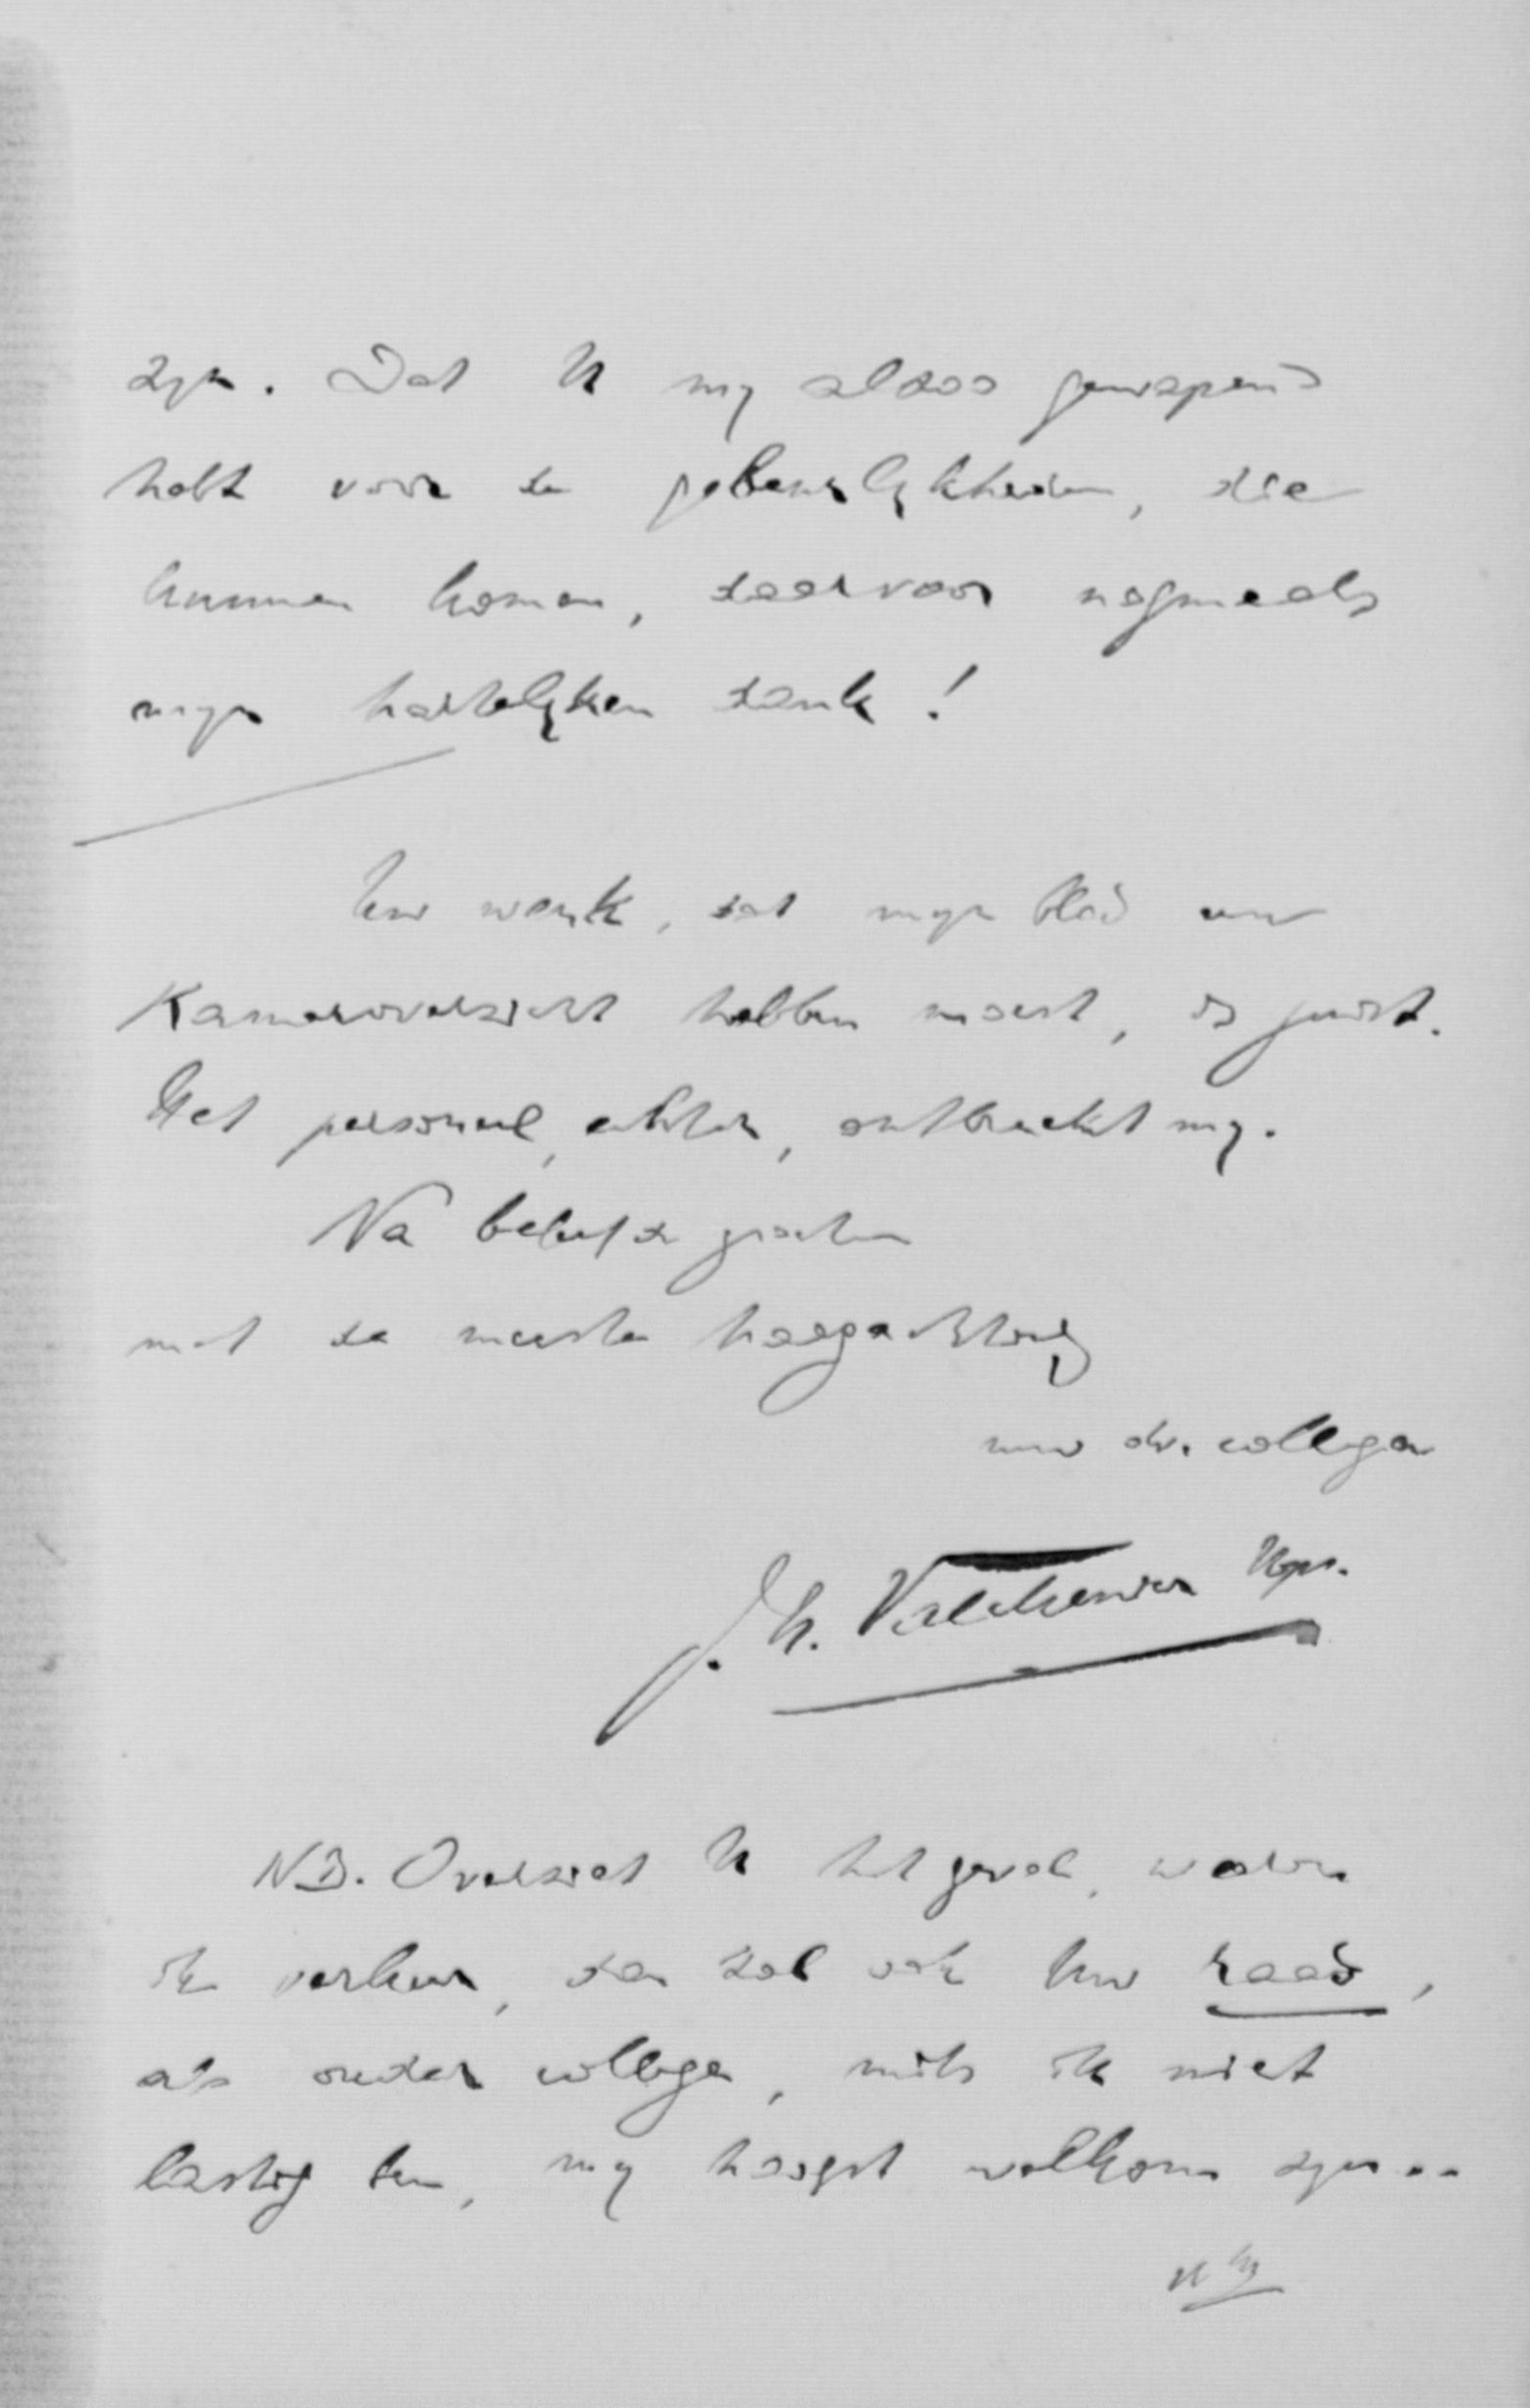 zijn. Dat U mij alzoo gewapend
hebt voor de gebeurlijkheden, die
kunnen komen, daarvoor nogmaals
mijn hartelijken dank!
Uw wenk, dat mijn blad een
Kameroverzicht hebben moest, is juist.
Het personeel, echter, ontbreekt mij.
Na beleefde groeten
met de meeste hoogachting
uw dr. collega
J. H. Valckenier Kips.
N.B. Overziet U het geval, waarin
ik verkeer, dan zal ook Uw raad,
als ouder collega, mits ik niet
lastig ben, mij hoogst welkom zijn..